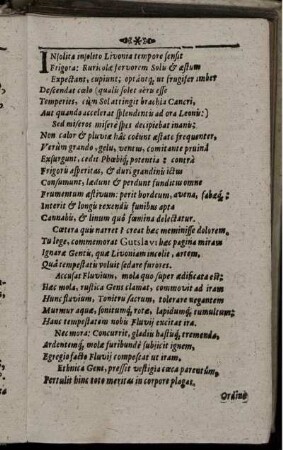 INsolita insolito Livonia tempore sensit
Frigora: Ruricolæ fervorem Solis & æstum
Expectant, cupiunt; optántq́; ut frugifer imber
Descendat cælo (qualis solet œre esse
Temperies, cùm Sol attingit brachia Cancri,
Aut quando accelerat splendentis ad ora Leonis:)
Sed miseros miserè spes decipiebat inanis:
Non calor & pluviæ hâc coëunt æstate frequenter,
Verùm grando, gelu, ventus, comitante pruinâ
Exsurgunt, cedit Phœbiq́; potentia: contrà
Frigoris asperitas, & duri grandinis ictus
Consumunt, lædunt & perdunt funditus omne
Frumentum æstivum: perit hordeum, avena, fabæq́;
Interit & longis texendis funibus apta
Cannabis, & linum quô fæmina delectatur.
Cætera quis narret? creat hæc meminisse dolorem.
Tu lege, commemorat Gutslavi hæc pagina miram
Ignaræ Gentis, quæ Livoniam incolit, artem,
Quâ tempestatis voluit sedare furores.
Accusat Fluvium, mola quo super ædificata est;
Hæc mola, rustica Gens clamat, commovit ad iram
Hunc fluvium, Tonitru sacrum, tolerare negantem
Murmur aquæ, sonitumq́; rotæ, lapidumq́; tumultum;
Hanc tempestatem nobis Fluvij excitat ira.
Nec mora: Concurrit, gladiis hastisq́; tremenda,
Ardentemq́; molæ furibundè subjicit ignem,
Egregio facto Fluvij compescat ut iram.
Ethnica Gens, pressit vestigia cæca parentûm,
Pertulit hinc tote meritas in corpore plagas.
Ordine